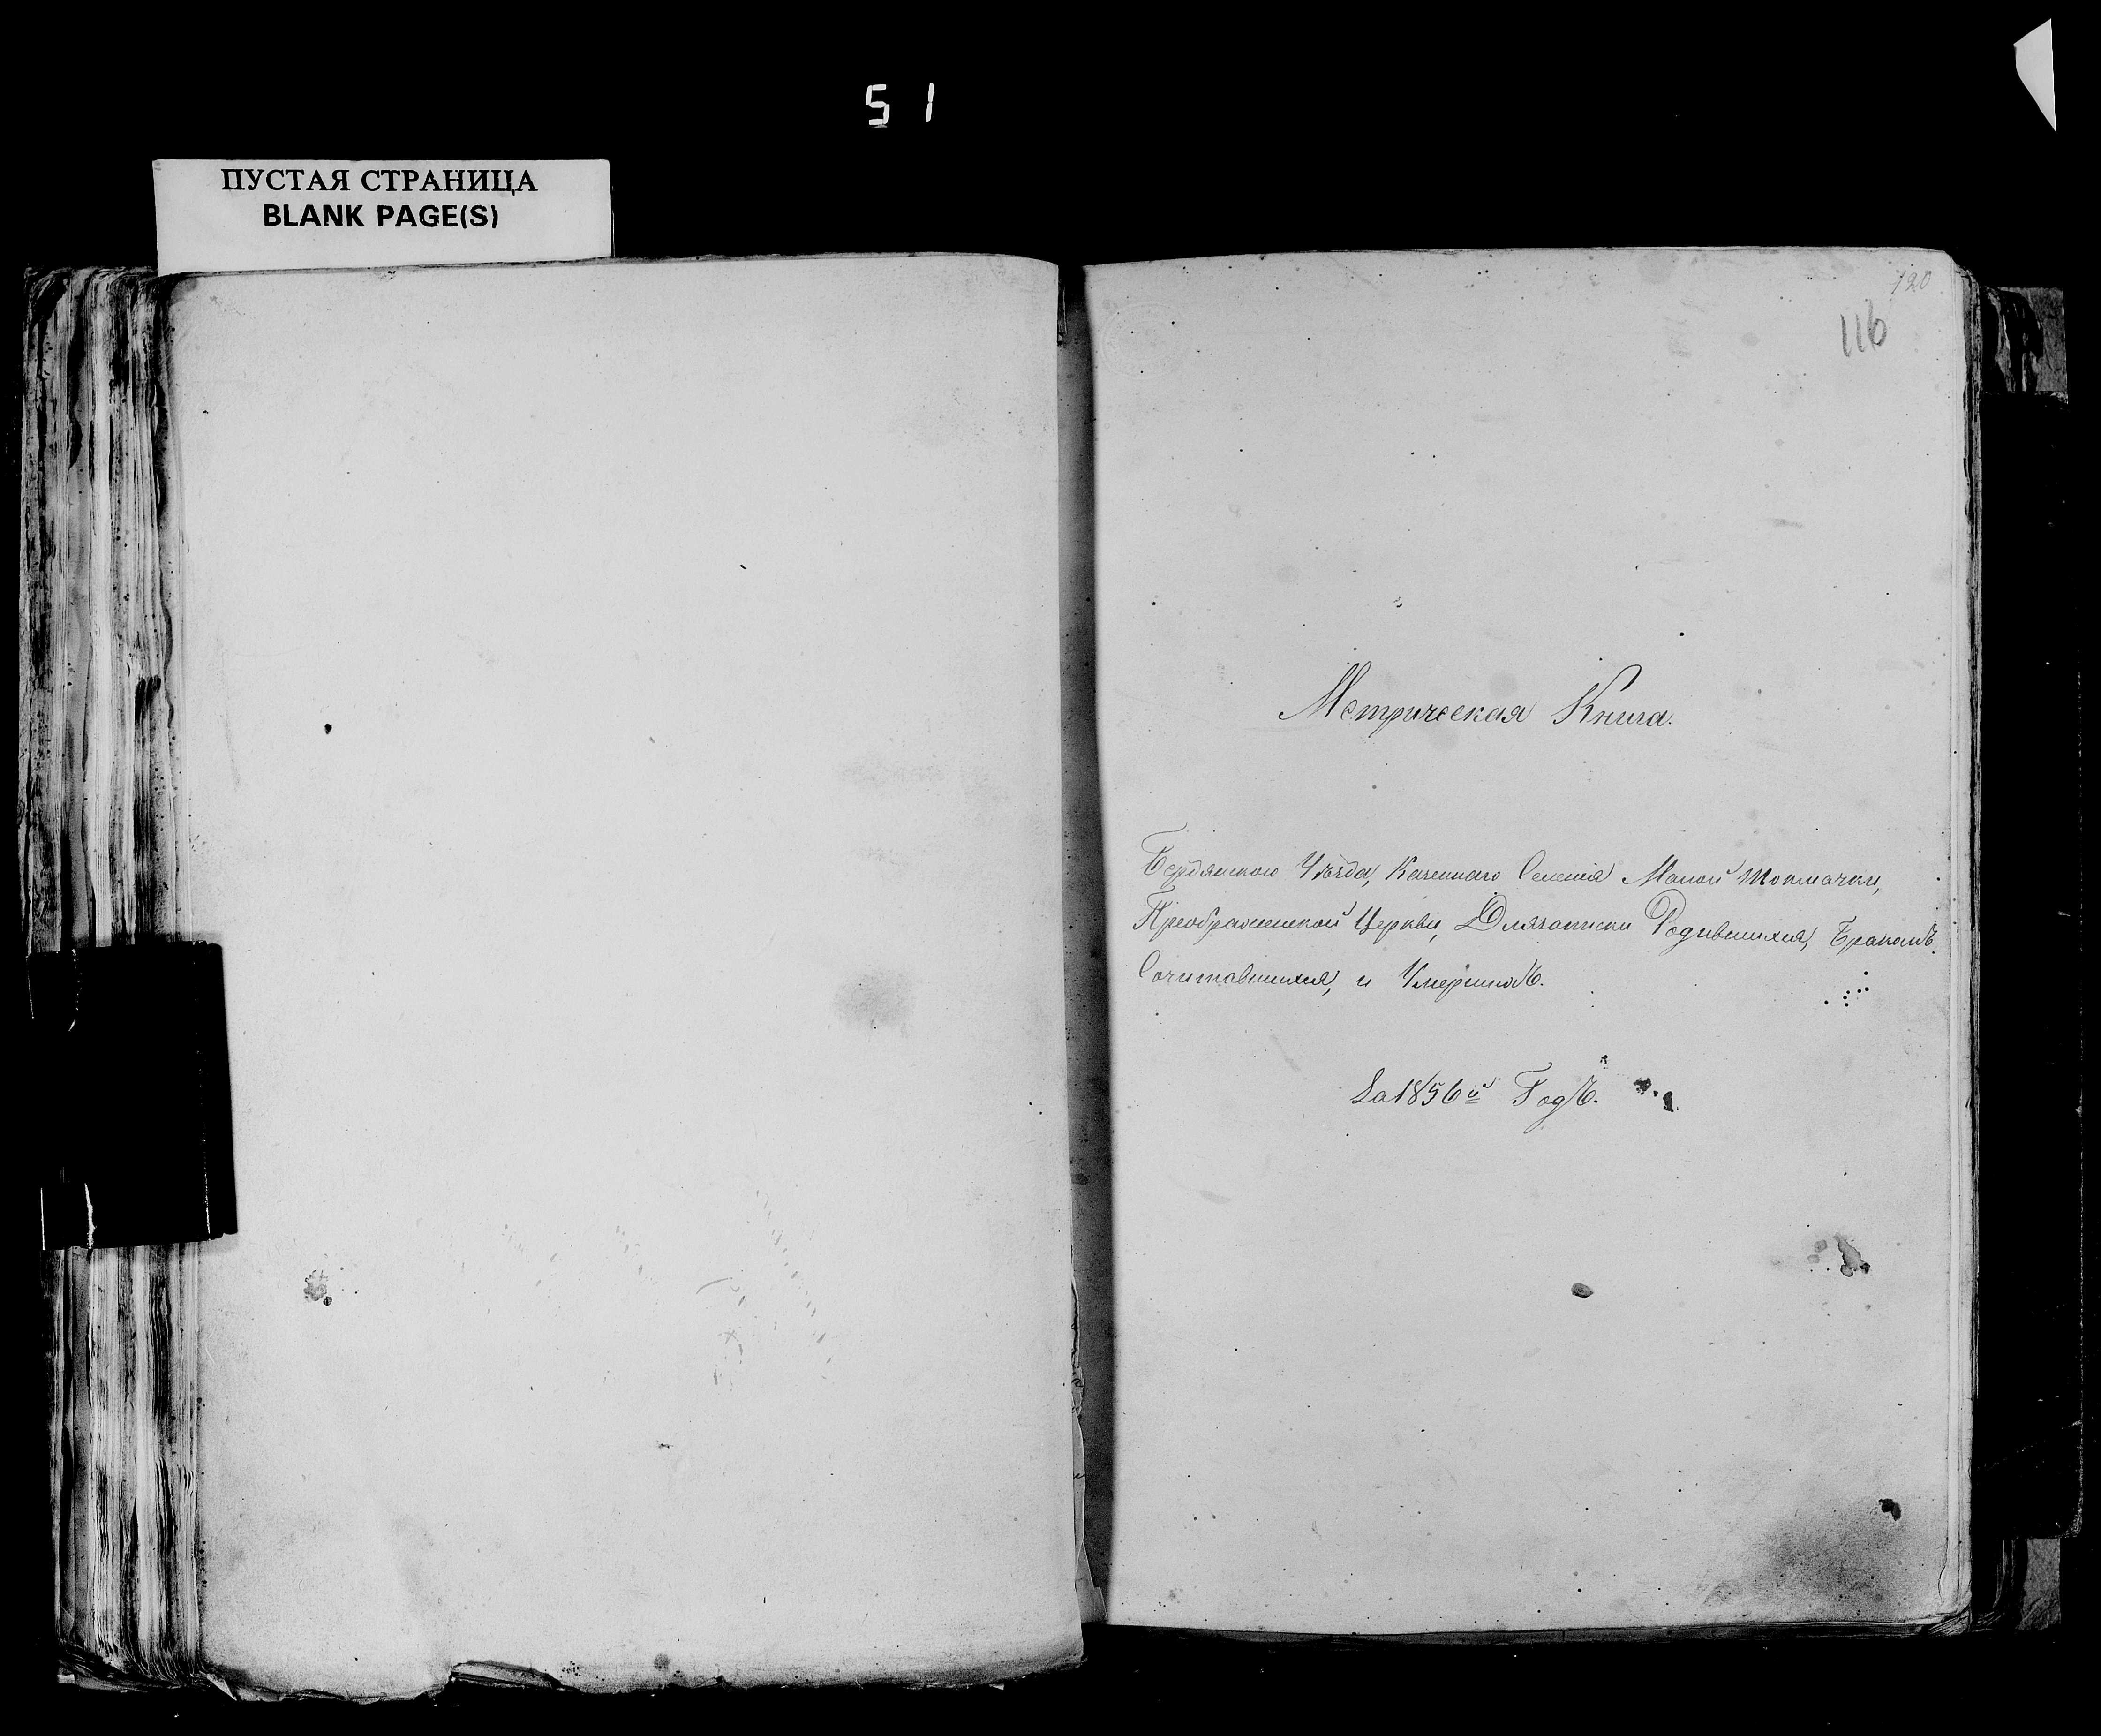 51
ПУСТАЯ СТРАНИЦА
BLANK PAGE(S)
120
116
Метрическая Книга.
Бердянскаго Уѣзда, Казеннаго Селенія Малой Токмачки,
Преображенской Церкви, Для записки Родившихся, Бракомъ
Сочитавшихся, и Умершихъ.
За 1856й Годъ.